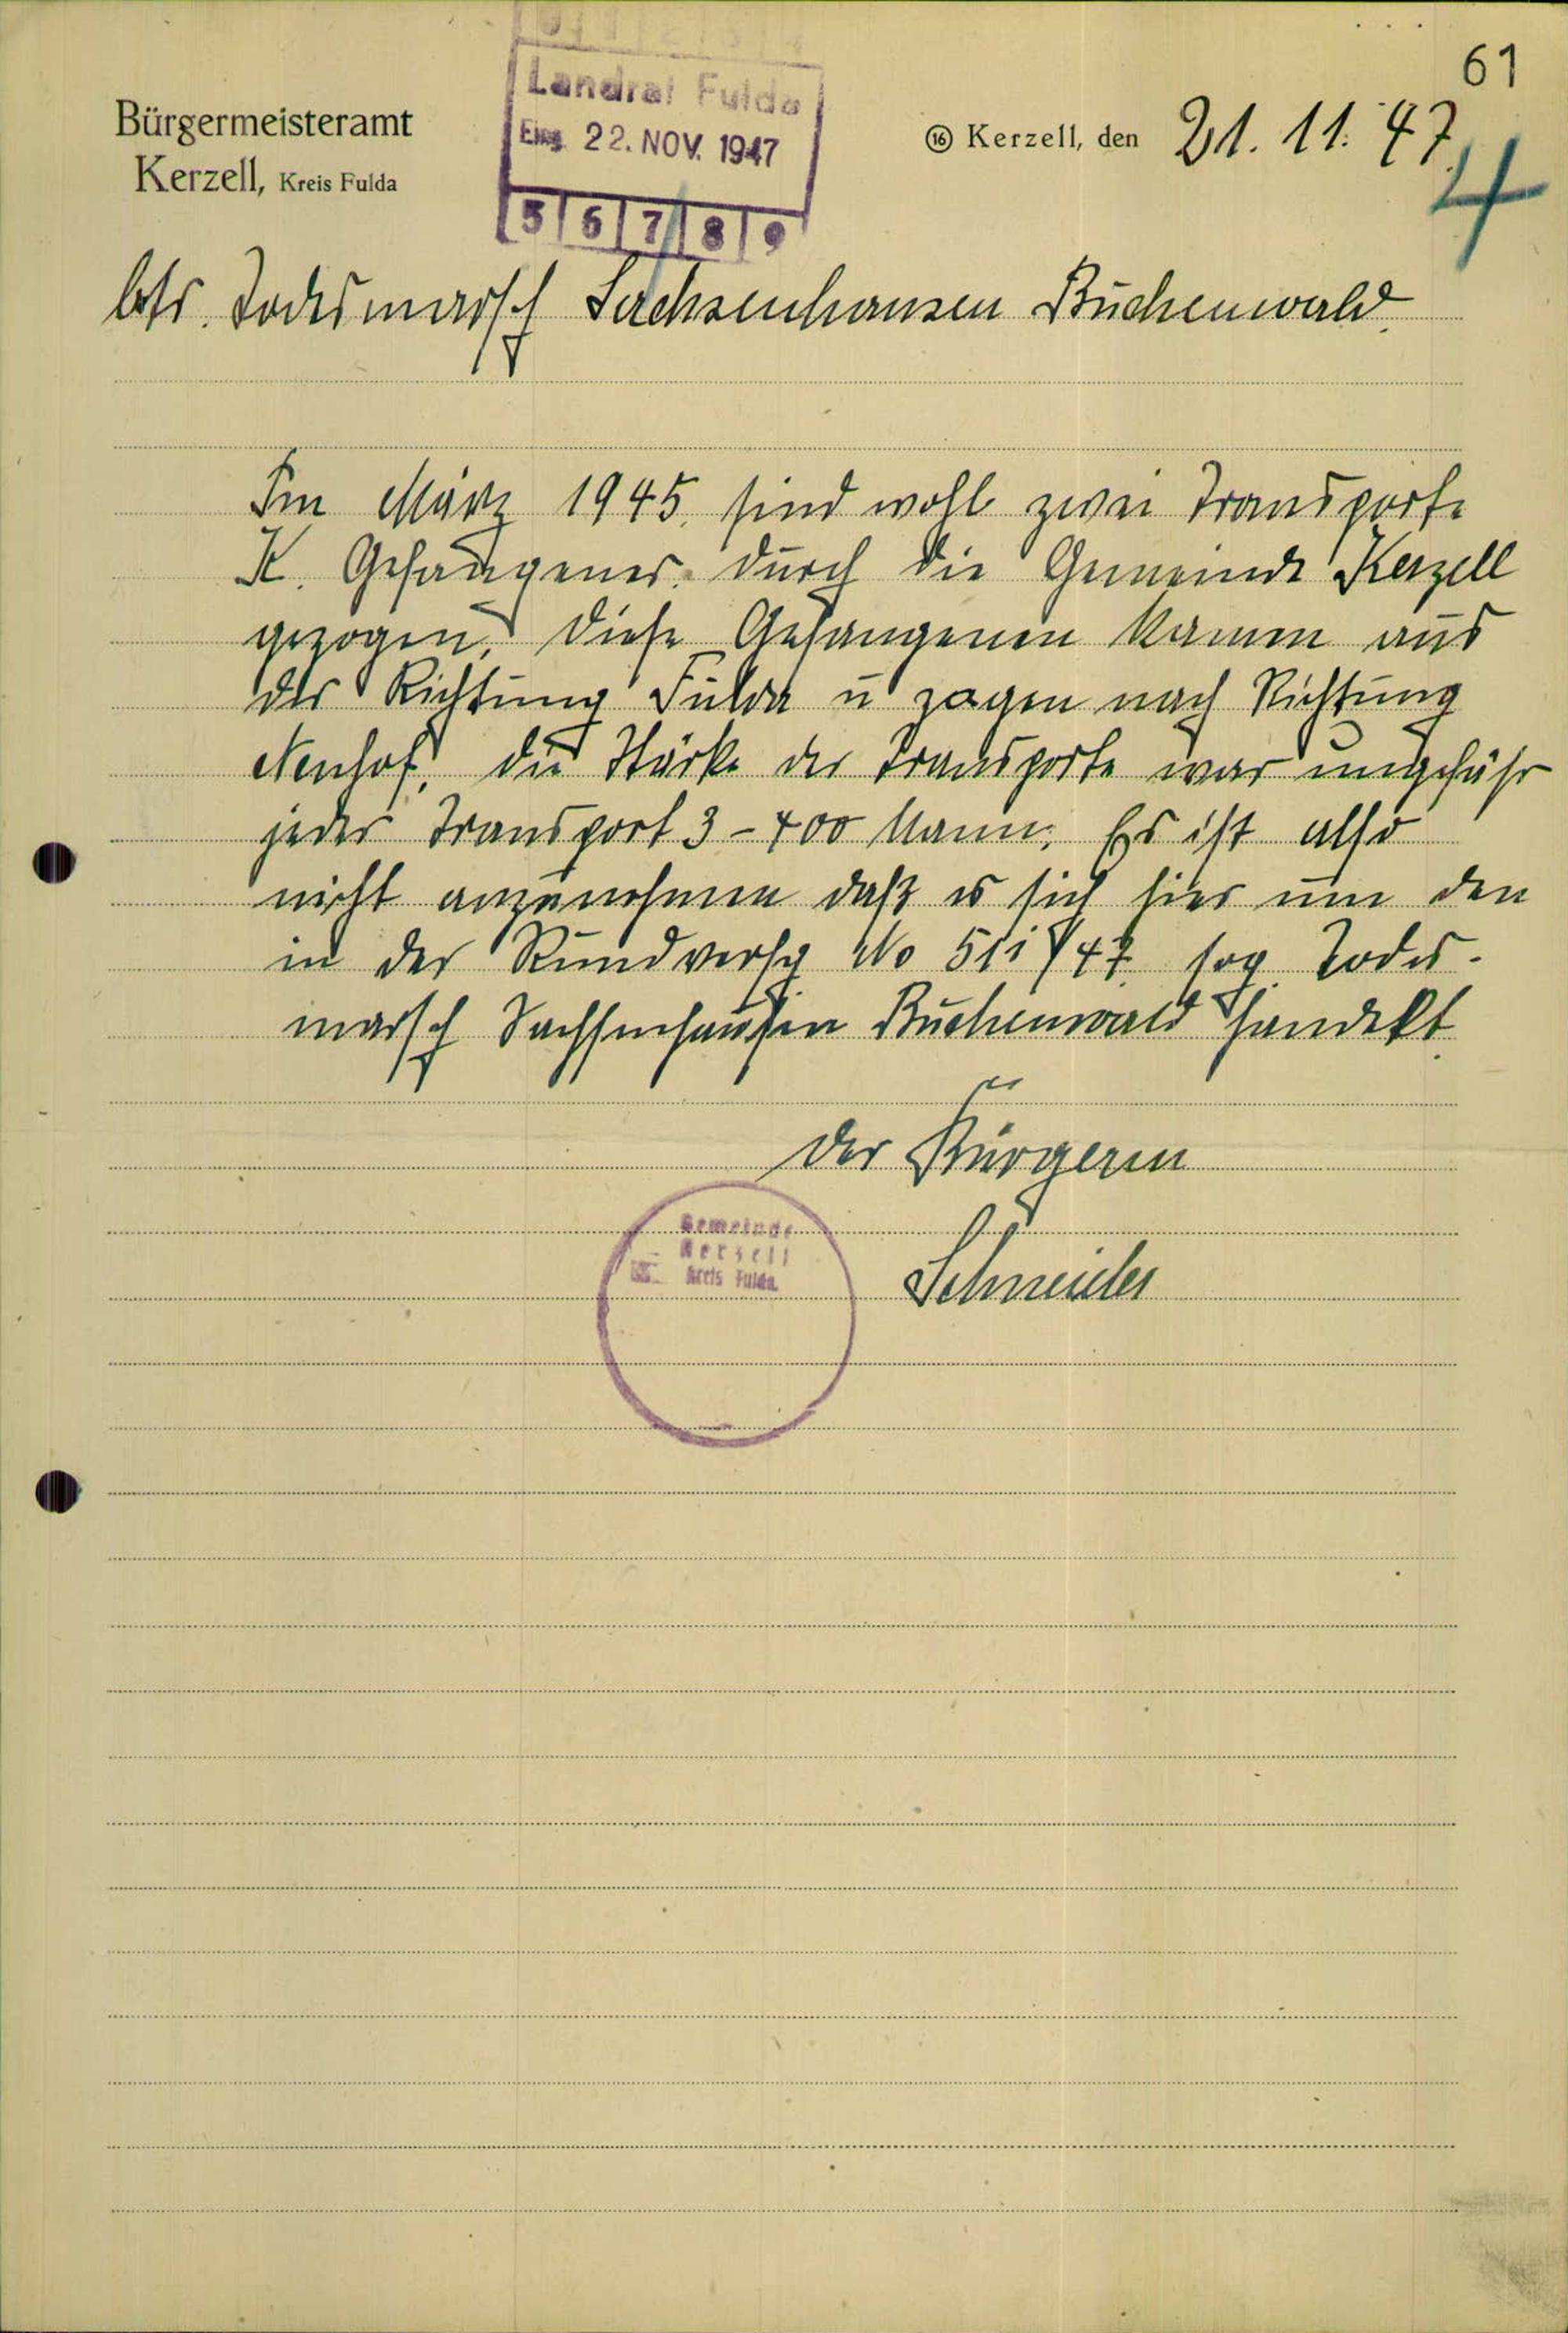 61
Bürgermeisteramt
Kerzell, Kreis Fulda
Landrat Fulda
Eing. 22. NOV. 1947
5 6 7 8 9
⑯ Kerzell, den 21. 11. 47.
4
betr. Todesmarsch Sachsenhausen Buchenwald.
Im März 1945 sind wohl zwei Transporte
K. Gefangener durch die Gemeinde Kerzell
gezogen, diese Gefangenen kamen aus
der Richtung Fulda u zogen nach Richtung
Neuhof, die Stärke der Transporte war ungefähr
jeder Transport 3-400 Mann. Es ist also
nicht anzunehmen daß es sich hier um den
in der Rundverfg No 511/47 sog. Todes-
marsch Sachsenhausen Buchenwald handelt.
Der Bürgerm
Schneider
Gemeinde
Kerzell
Kreis Fulda